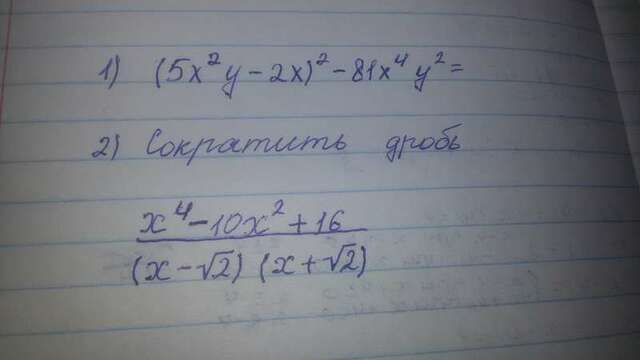 1) (5x²y - 2x)² - 81x⁴y² =
2) Сократить дробь
x⁴ - 10x² + 16
(x - √2) (x + √2)